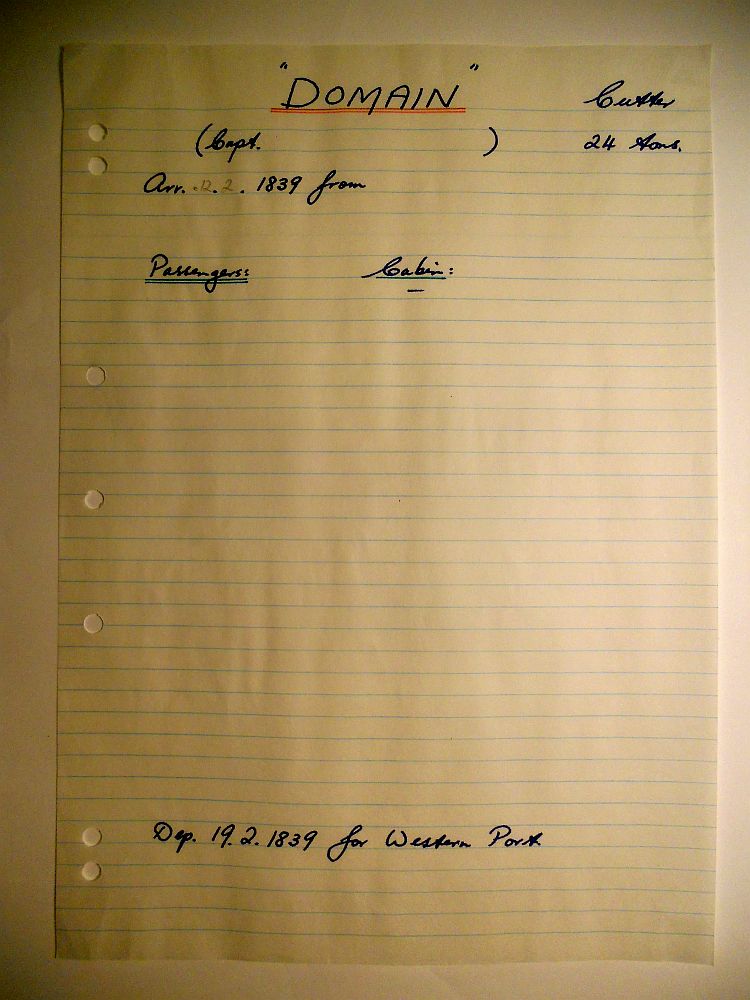 "DOMAIN"
Cutter
(Capt. )
24 tons.
Arr. 12.2. 1839 from
Passengers:
Cabin:
—
Dep. 19.2.1839 for Western Port